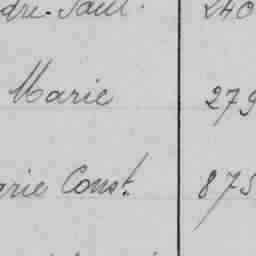 dre-Paul. 240
Marie 279
arie Const. 875